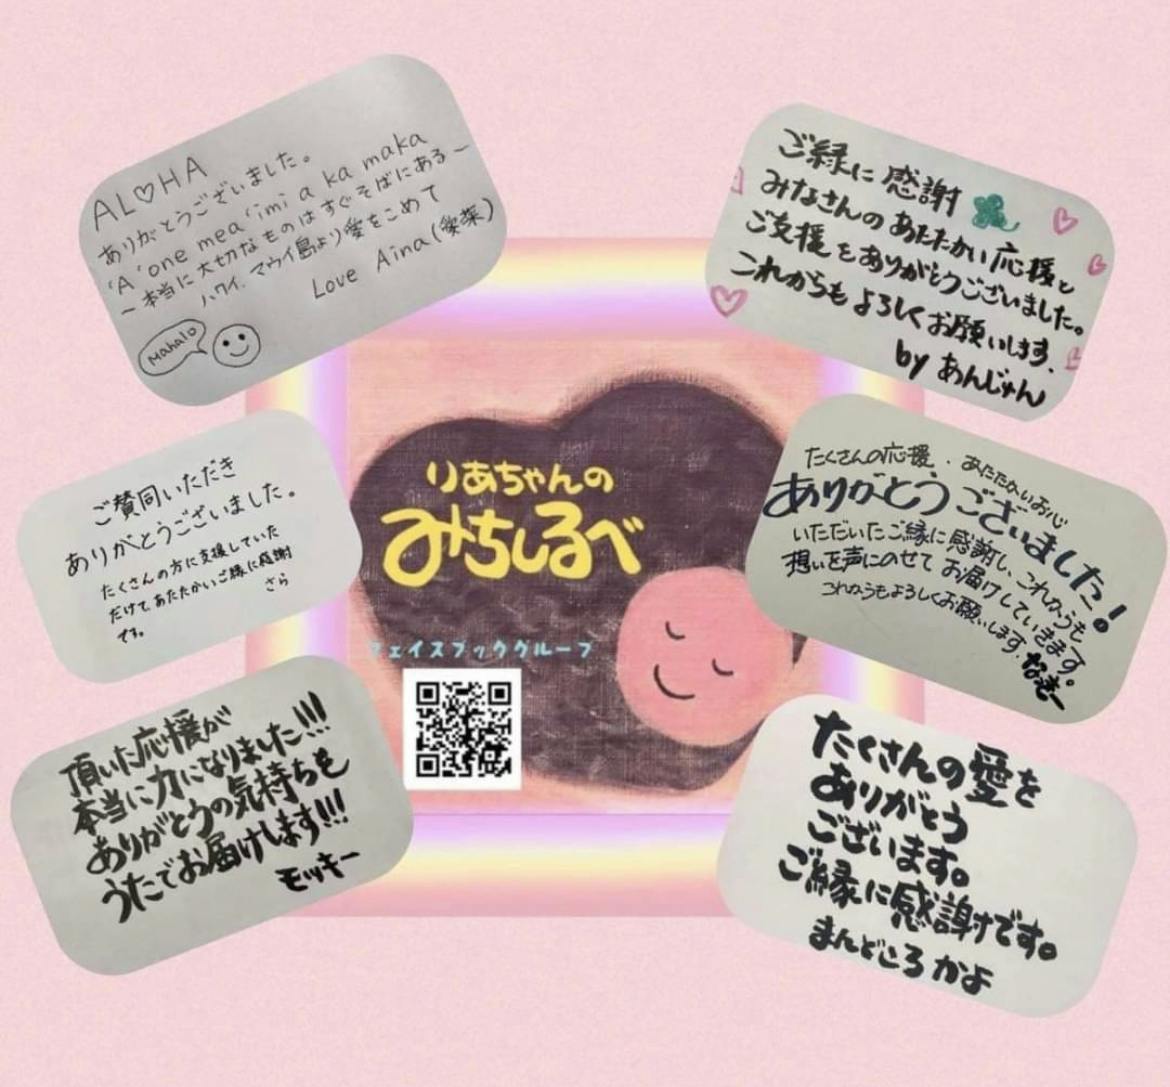 AL♡HA
ありがとうございました。
'A 'one mea 'imi a ka maka
ー本当に大切なものはすぐそばにあるー
ハワイ、マウイ島より愛をこめて
Love Aina(愛菜)
Mahalo
ご縁に感謝
みなさんのあたたかい応援と
ご支援をありがとうございました。
これからもよろしくお願いします。
by あんじゅん
ご賛同いただき
ありがとうございました。
たくさんの方に支援していた
だけて、あたたかいご縁に感謝
です。
さら
りあちゃんの
みちしるべ
フェイスブックグループ
たくさんの応援、あたたかいお心
ありがとうございました!
いただいたご縁に感謝し、これからも
想いを声にのせてお届けしていきます。
これからもよろしくお願いします。
なき〜
頂いた応援が
本当に力になりました!!!
ありがとうの気持ちを
うたでお届けします!!!
モッキー
たくさんの愛を
ありがとう
ございます。
ご縁に感謝です。
まんどころ かよ